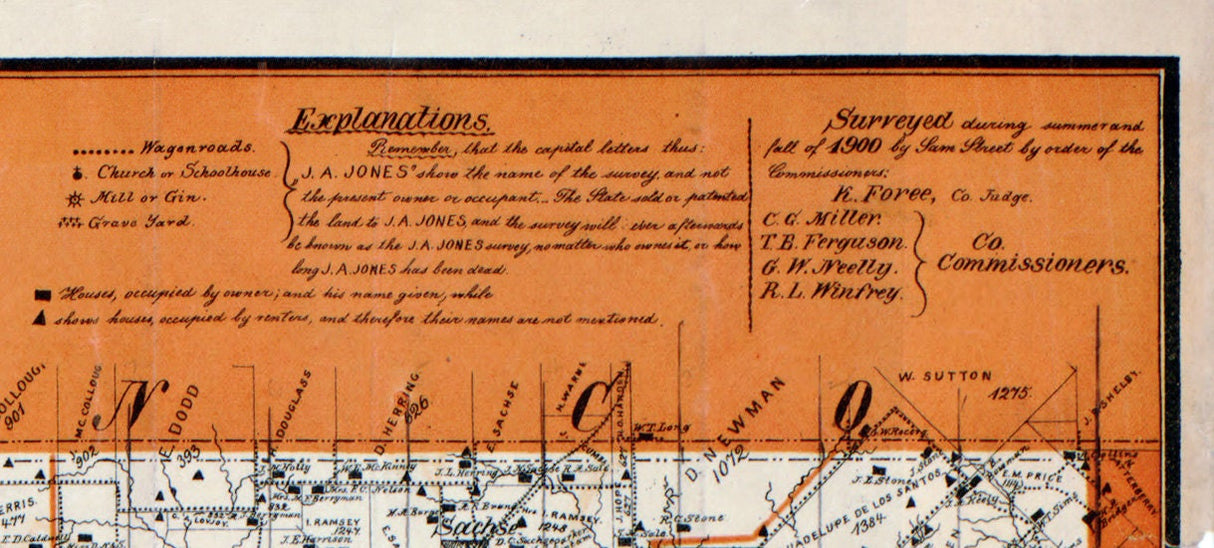 Explanations.
Wagonroads.
Church or Schoolhouse.
Mill or Gin.
Grave Yard.
Remember, that the capital letters thus:
J. A. JONES" show the name of the survey, and not
the present owner or occupant. The State sold or patented
the land to J. A. JONES, and the survey will ever afterwards
be known as the J. A. JONES survey, no matter who owns it, or how
long J. A. JONES has been dead.
Houses, occupied by owner; and his name given, while
shows houses, occupied by renters, and therefore their names are not mentioned.
Surveyed during summer and
fall of 1900 by Sam Street by order of the
Commissioners:
K. Foree, Co. Judge.
C. G. Miller.
T. B. Ferguson.
G. W. Neelly.
R. L. Winfrey.
Co.
Commissioners.
N C O.
901
MCCOLLOUG
902
E. DODD
395
DOUGLASS
D. HERRING
626
E. SACHSE
H. WARNE
W. T. Long
D. NEWMAN
1072
W. SUTTON
1275.
J. B. SHELBY.
J. M. Holly
W. E. McKinney
J. L. Herring
R. A. Sale
Mrs. P. C. Nelson
Mrs. M. F. Berryman
832
LOVJOY.
I. RAMSEY
1247
J. E. Harrison
Sachse
I. RAMSEY.
1248
R. C. Stone
J. E. Stone
GUADELUPE DE LOS SANTOS
1384
E. M. PRICE
H. T. Sims
ERRIS.
477
E. D. Caldwell